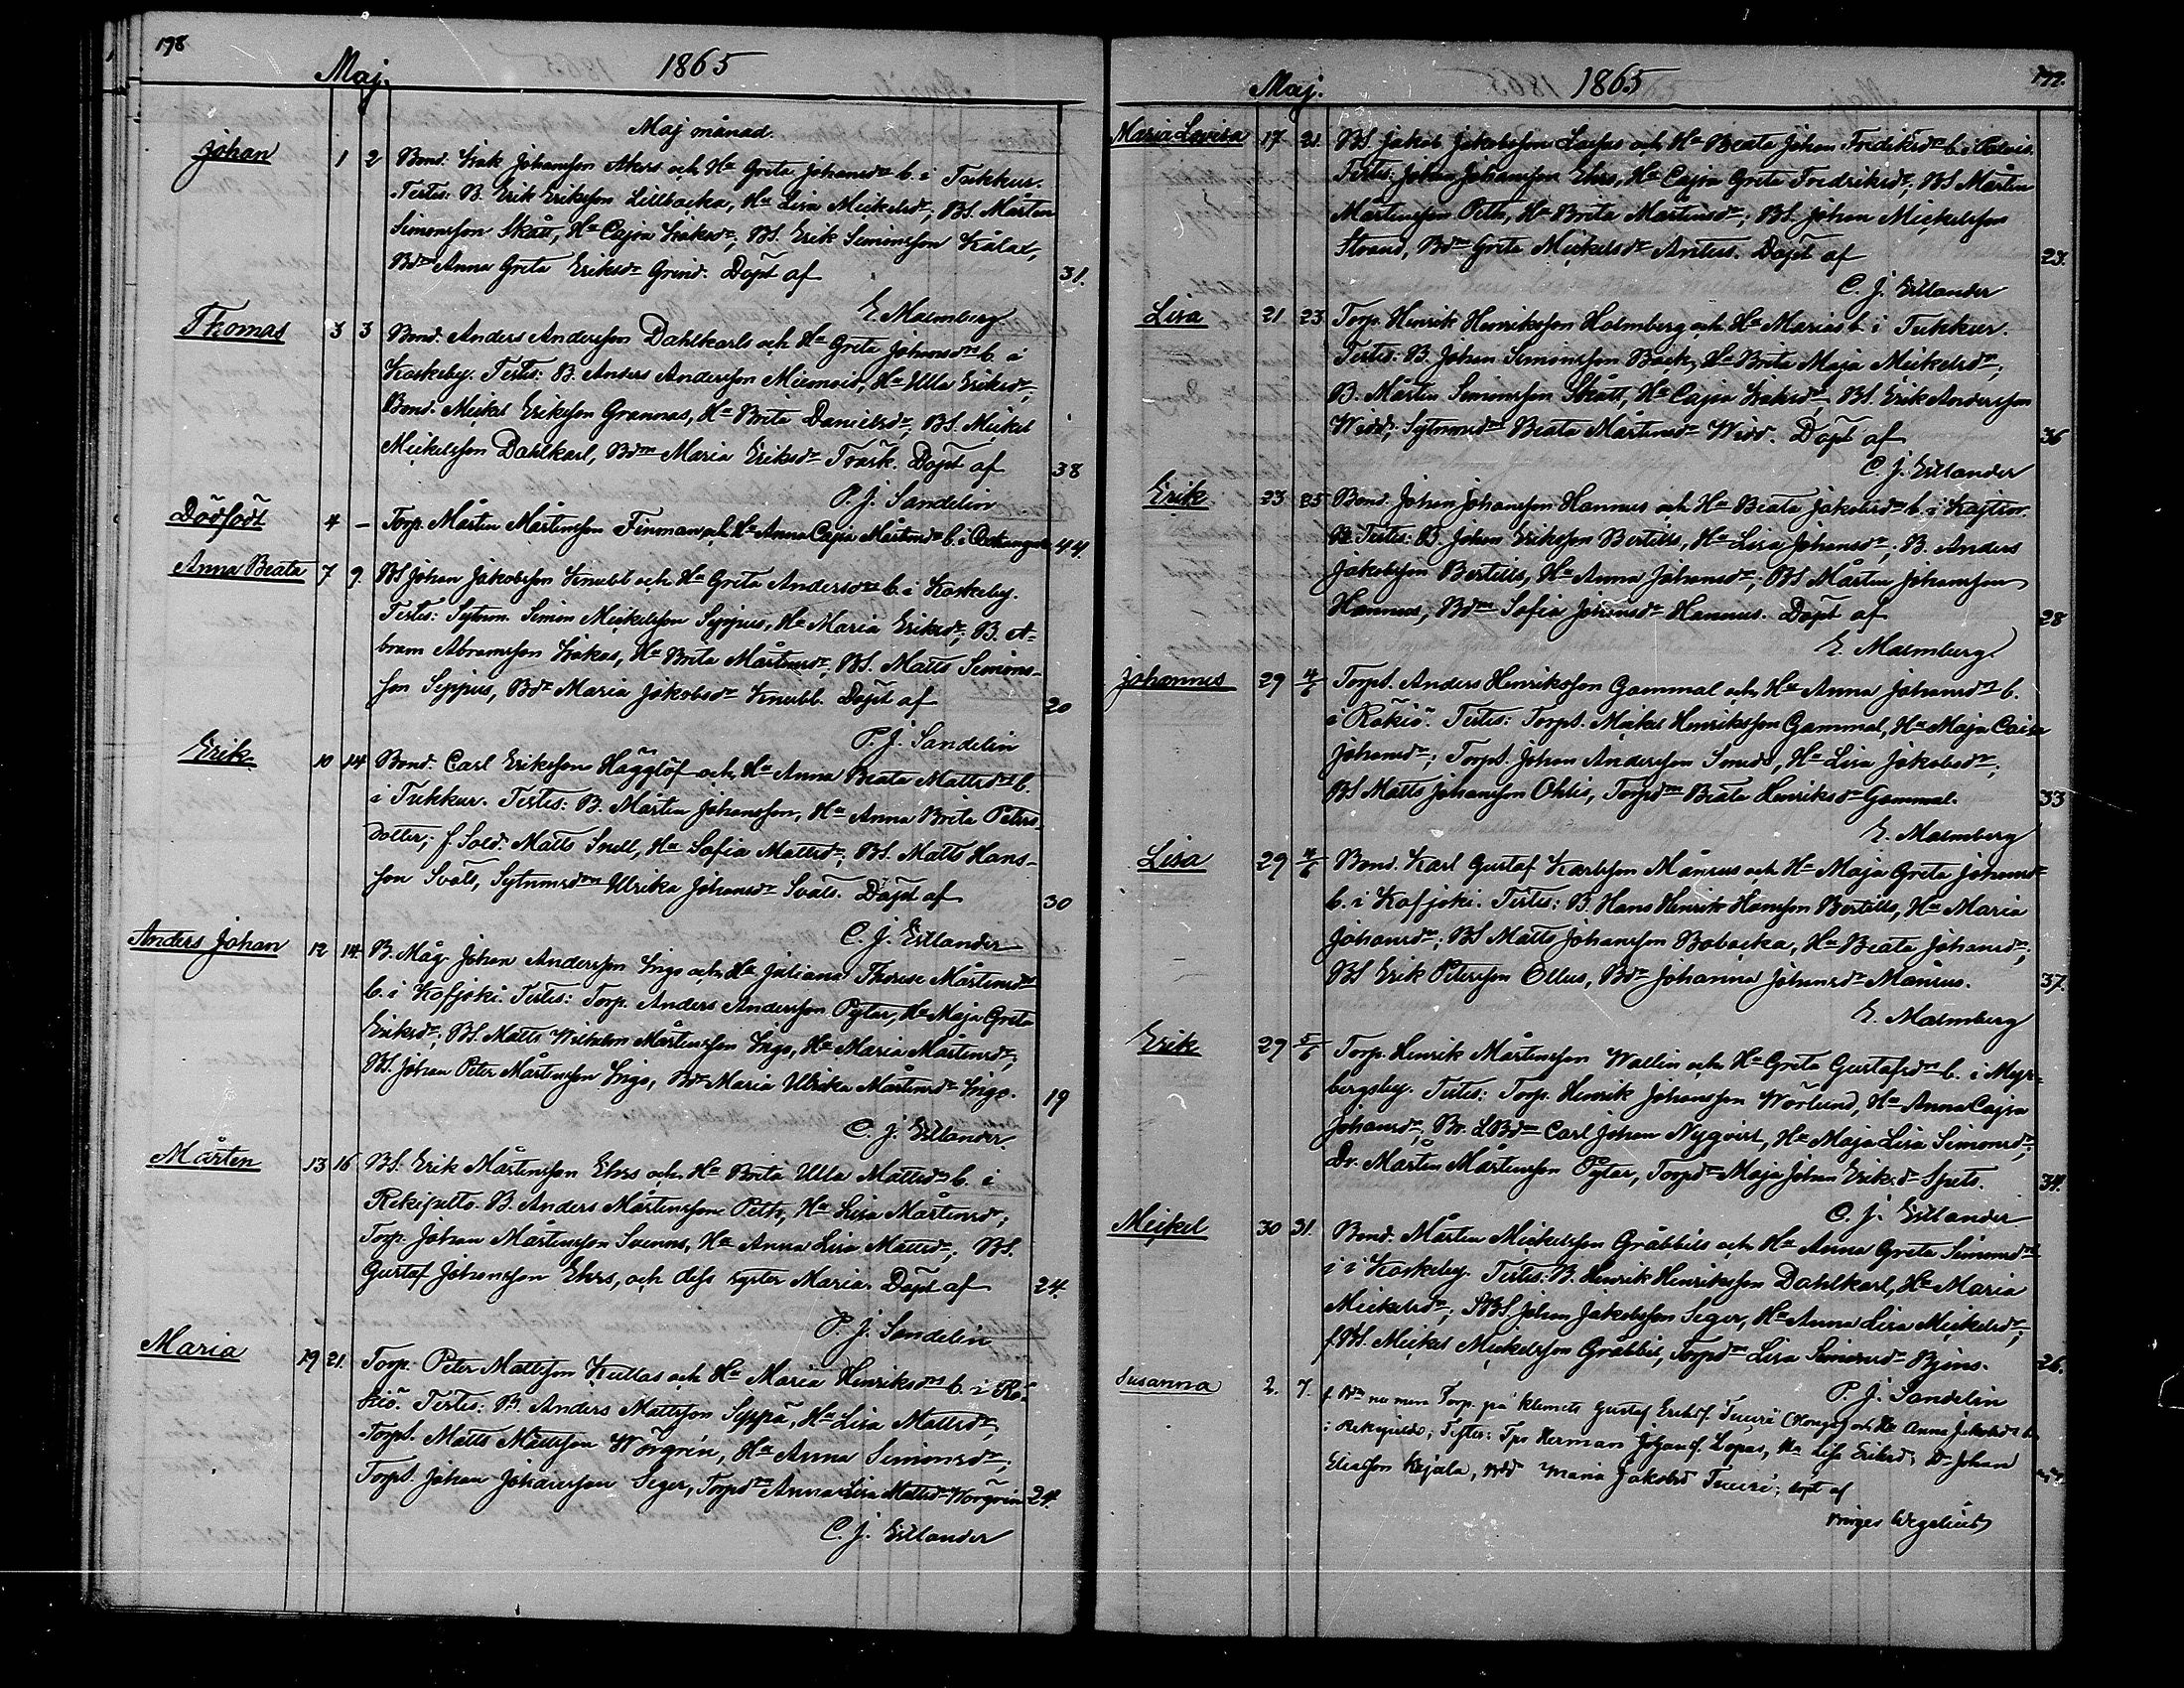 198
Maj. 1865
Maj månad.
Johan 1 2 Bond. Isak Johansson Akers och Hu Greta Johansdr b. i Tukkur.
Testes: B. Erik Eriksson Lillbacka, Hu Lisa Mickelsdr; BS. Mårten
Simonsson Skått, Hu Cajsa Isaksdr; BS. Erik Simonsson Kålax,
Bdm Anna Greta Eriksdr Grind. Döpt af 31.
E. Malmberg
Thomas 3 3 Bond. Anders Andersson Dahlkarls och Hu Greta Johansdr b. i
Koskeby. Testes: B. Anders Andersson Miemois, Hu Ulla Eriksdr;
Bond. Mickel Eriksson Grannas, Hu Brita Danielsdr; BS. Mickel
Mickelsson Dahlkarl, Bdm Maria Eriksdr Träsk. Döpt af 38
P. J. Sandelin
Dödfödt 4 – Torp. Mårten Mårtensson Finman och Hu Anna Cajsa Mårtensdr b. i 44.
Anna Beata 7 9. BS Johan Jakobsson Knubb och Hu Greta Andersdr b. i Koskeby.
Testes: Sytnm. Simon Mickelsson Seppus, Hu Maria Eriksdr; B. A-
bram Abramsson Isakas, Hu Brita Mårtensdr; BS. Matts Simons-
son Seppus, Bdr Maria Jakobsdr Knubb. Döpt af 20
P. J. Sandelin
Erik 10 14 Bond. Carl Eriksson Hägglöf och Hu Anna Beata Mattsdr b.
i Tukkur. Testes: B. Mårten Johansson, Hu Anna Brita Peters-
dotter; f. Sold. Matts Snell, Hu Sofia Mattsdr; BS. Matts Hans-
son Svals, Sytnmsdm Ulrika Johansdr Svals. Döpt af 30
C. J. Estlander
Anders Johan 12 14. B. Måg. Johan Andersson Ingo och Hu Juliana Therese Mårtensdr
b. i Kofjoki. Testes: Torp. Anders Andersson Pytar, Hu Maja Greta
Eriksdr; BS. Matts Wilhelm Mårtensson Ingo, Hu Maria Mårtensdr;
BS. Johan Peter Mårtensson Ingo, Bdr Maria Ulrika Mårtensdr Ingo. 19
C. J. Estlander.
Mårten 13 16 BS. Erik Mårtensson Ehrs och Hu Brita Ulla Mattsdr b. i
Rekipelto. B. Anders Mårtensson Peth, Hu Lisa Mårtensdr;
Torp. Johan Mårtensson Svenns, Hu Anna Lisa Mattsdr; BS.
Gustaf Johansson Ehrs, och dess syster Maria. Döpt af 24.
P. J. Sandelin
Maria 19 21. Torp. Peter Mattsson Kullas och Hu Maria Henriksdr b. i Rö-
kiö. Testes: B. Anders Mattsson Seppä, Hu Lisa Mattsdr;
Torpt. Matts Mattsson Wörgren, Hu Anna Simonsdr;
Torpt. Johan Johansson Seger, Torpdr Anna Lisa Mattsdr Wörgren 24.
C. J. Estlander
Maj. 1865 199.
Maria Lovisa 17 21. BS. Jakob Jakobsson Lassus och Hu Beata Johan Fredriksdr b. i
Testes: Johan Johansson Ehrs, Hu Cajsa Greta Fredriksdr; BS Mårten
Mårtensson Peth, Hu Brita Mårtensdr; BS. Johan Mickelsson
Strand, Bdm Greta Mickelsdr Antus. Döpt af 23.
C. J. Estlander
Lisa 21 23 Torp. Henrik Henriksson Holmberg och Hu Maria b. i Tukkur.
Testes: B. Johan Simonsson Back, Hu Brita Maja Mickelsdr;
B. Mårten Simonsson Skått, Hu Cajsa Isaksdr; BS. Erik Andersson
Widd, Sytnmsdr Beata Mårtensdr Widd. Döpt af 36
C. J. Estlander
Erik 23 25 Bond. Johan Johansson Hannus och Hu Beata Jakobsdr b. i Kajtsor.
Testes: B. Johan Eriksson Bertills, Hu Lisa Johansdr; B. Anders
Jakobsson Bertills, Hu Anna Johansdr; BS Mårten Johansson
Hannus, Bdm Sofia Johansdr Hannus. Döpt af 28
E. Malmberg.
Johannes 29 4/6 Torpt. Anders Henriksson Gammal och Hu Anna Johansdr b.
i Rökiö. Testes: Torpt. Mickel Henriksson Gammal, Hu Maja Caisa
Johansdr; Torpt. Johan Andersson Smeds, Hu Lisa Jakobsdr;
BS Matts Johansson Ohlis, Torpdm Beata Henriksdr Gammal. 33
E. Malmberg
Lisa 29 4/6 Bond. Karl Gustaf Karlsson Månsus och Hu Maja Greta Johansdr
b. i Kofjoki. Testes: B Hans Henrik Hansson Bertills, Hu Maria
Johansdr; BS Matts Johansson Bobacka, Hu Beata Johansdr;
BS Erik Petersson Ollus, Bdr Johanna Johansdr Månsus. 37.
E. Malmberg
Erik 29 5/6 Torp. Henrik Mårtensson Wallin och Hu Greta Gustafsdr b. i Myr-
bergsby. Testes: Torp. Henrik Johansson Wörlund, Hu Anna Cajsa
Johansdr; Br. LBdm Carl Johan Nyqvist, Hu Maja Lisa Simonsdr;
Dr. Mårten Mårtensson Pytar, Torpdr Maja Johan Eriksdr Spets. 34.
C. J. Estlander
Mickel 30 31. Bond. Mårten Mickelsson Gräbbils och Hu Anna Greta Simonsdr
i i Koskeby. Testes: B. Henrik Henriksson Dahlkarl, Hu Maria
Mickelsdr; SBS Johan Jakobsson Seger, Hu Anna Lisa Mickelsdr;
f. BS. Mickel Mickelsson Gräbbil, Torpdm Lisa Simonsdr Bjens. 26.
P. J. Sandelin
Susanna 2. 7. f. Bdn nu mera Torp. på Klemets Gustaf Eriksf. Tuuri (Kongs) och Hu Anna Jakobsdr b.
i Rekipeldo; Testes: Tpr Herman Johansf. Lopas, Hu Lisa Eriksdr, Dr Johan
Eliasson Kejala, Maria Jakobsd Tuuri; döpt af
Birger Wegelius